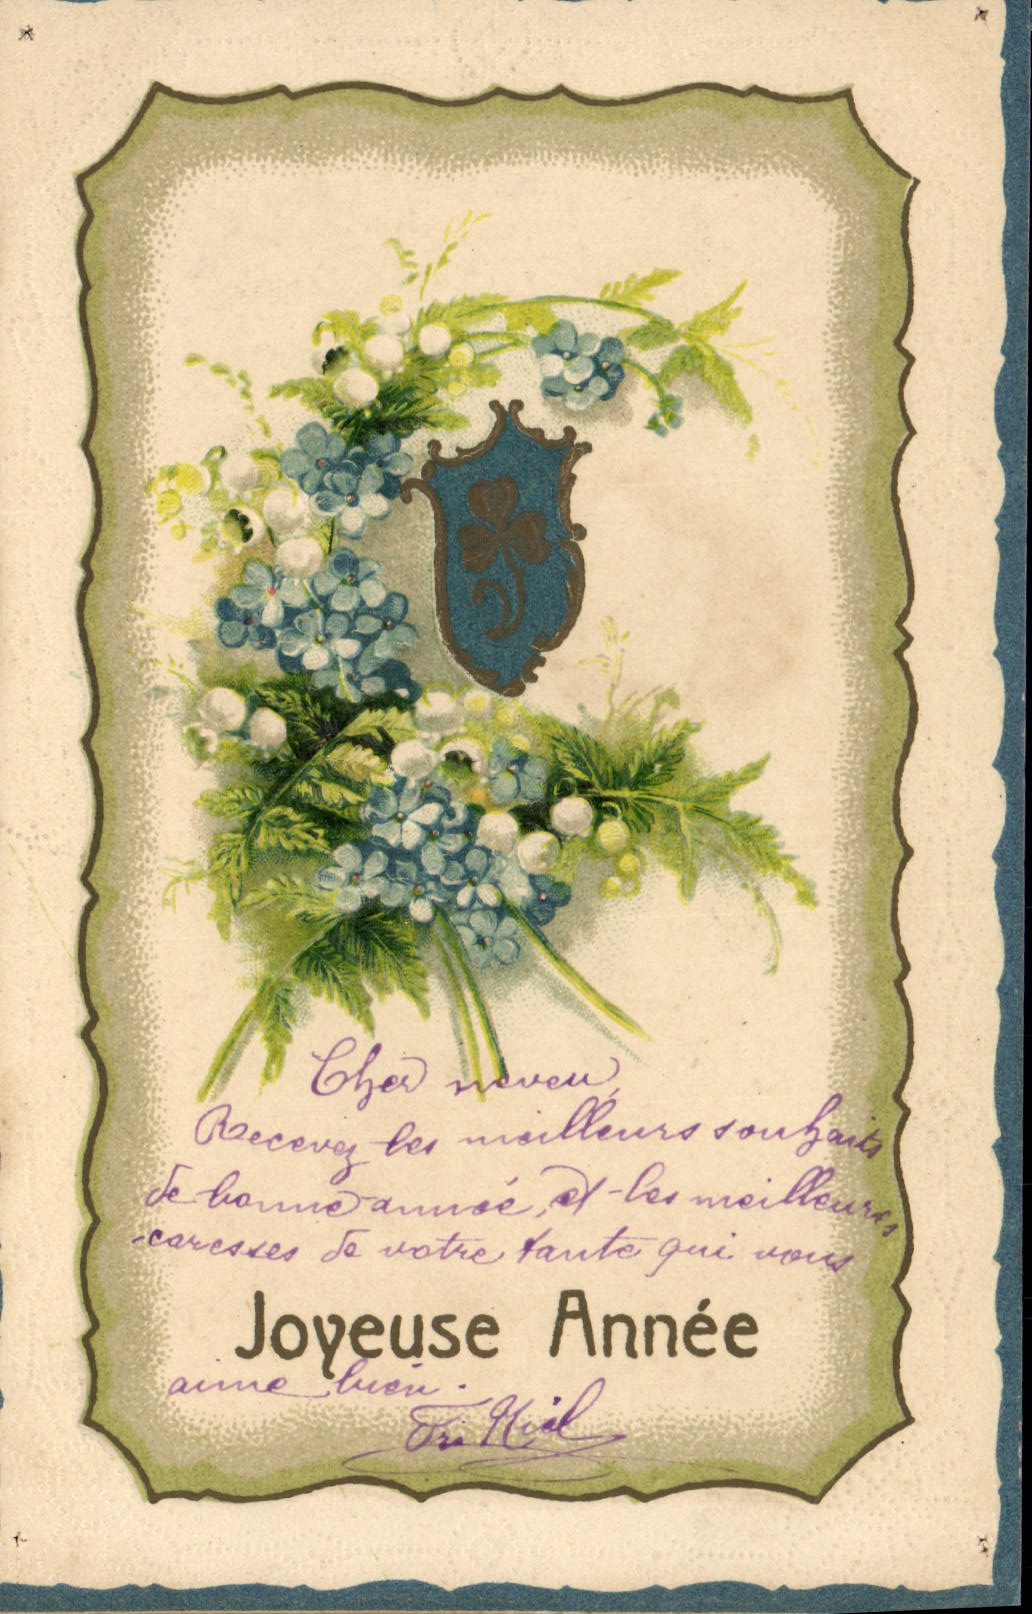 Cher neveu,
Recevez les meilleurs souhaits
de bonne année, et les meilleures
caresses de votre tante qui vous
Joyeuse Année
aime bien.